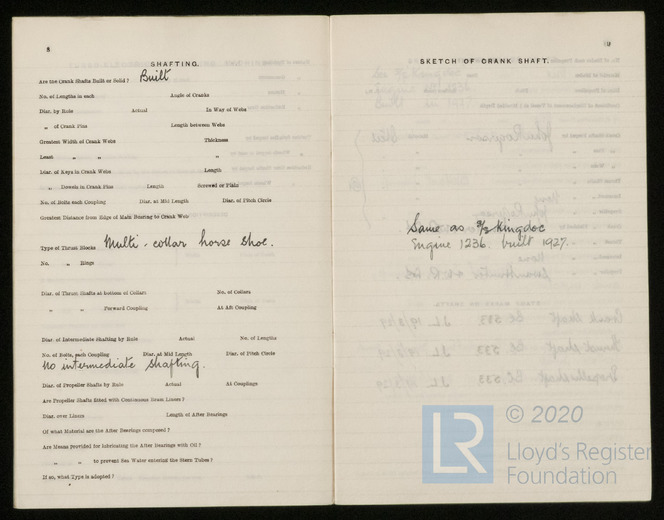 8
SHAFTING.
Are the Crank Shafts Built or Solid? Built
No. of Lengths in each Angle of Cranks
Diar. by Rule Actual In Way of Webs
„ of Crank Pins Length between Webs
Greatest Width of Crank Webs Thickness
Least „ „ „
Diar. of Keys in Crank Webs Length
„ Dowels in Crank Pins Length Screwed or Plain
No. of Bolts each Coupling Diar. at Mid Length Diar. of Pitch Circle
Greatest Distance from Edge of Main Bearing to Crank Web
Type of Thrust Blocks Multi-collar horse shoe.
No. „ Rings
Diar. of Thrust Shafts at bottom of Collars No. of Collars
„ „ Forward Coupling At Aft Coupling
Diar. of Intermediate Shafting by Rule Actual No. of Lengths
No. of Bolts, each Coupling Diar. at Mid Length Diar. of Pitch Circle
No intermediate shafting.
Diar. of Propeller Shafts by Rule Actual At Couplings
Are Propeller Shafts fitted with Continuous Brass Liners?
Diar. over Liners Length of After Bearings
Of what Material are the After Bearings composed?
Are Means provided for lubricating the After Bearings with Oil?
„ „ to prevent Sea Water entering the Stern Tubes?
If so, what Type is adopted?
SKETCH OF CRANK SHAFT.
Same as S/S Kingdoc
Engine 1236 built 1927.
© 2020
LR
Lloyd's Register
Foundation